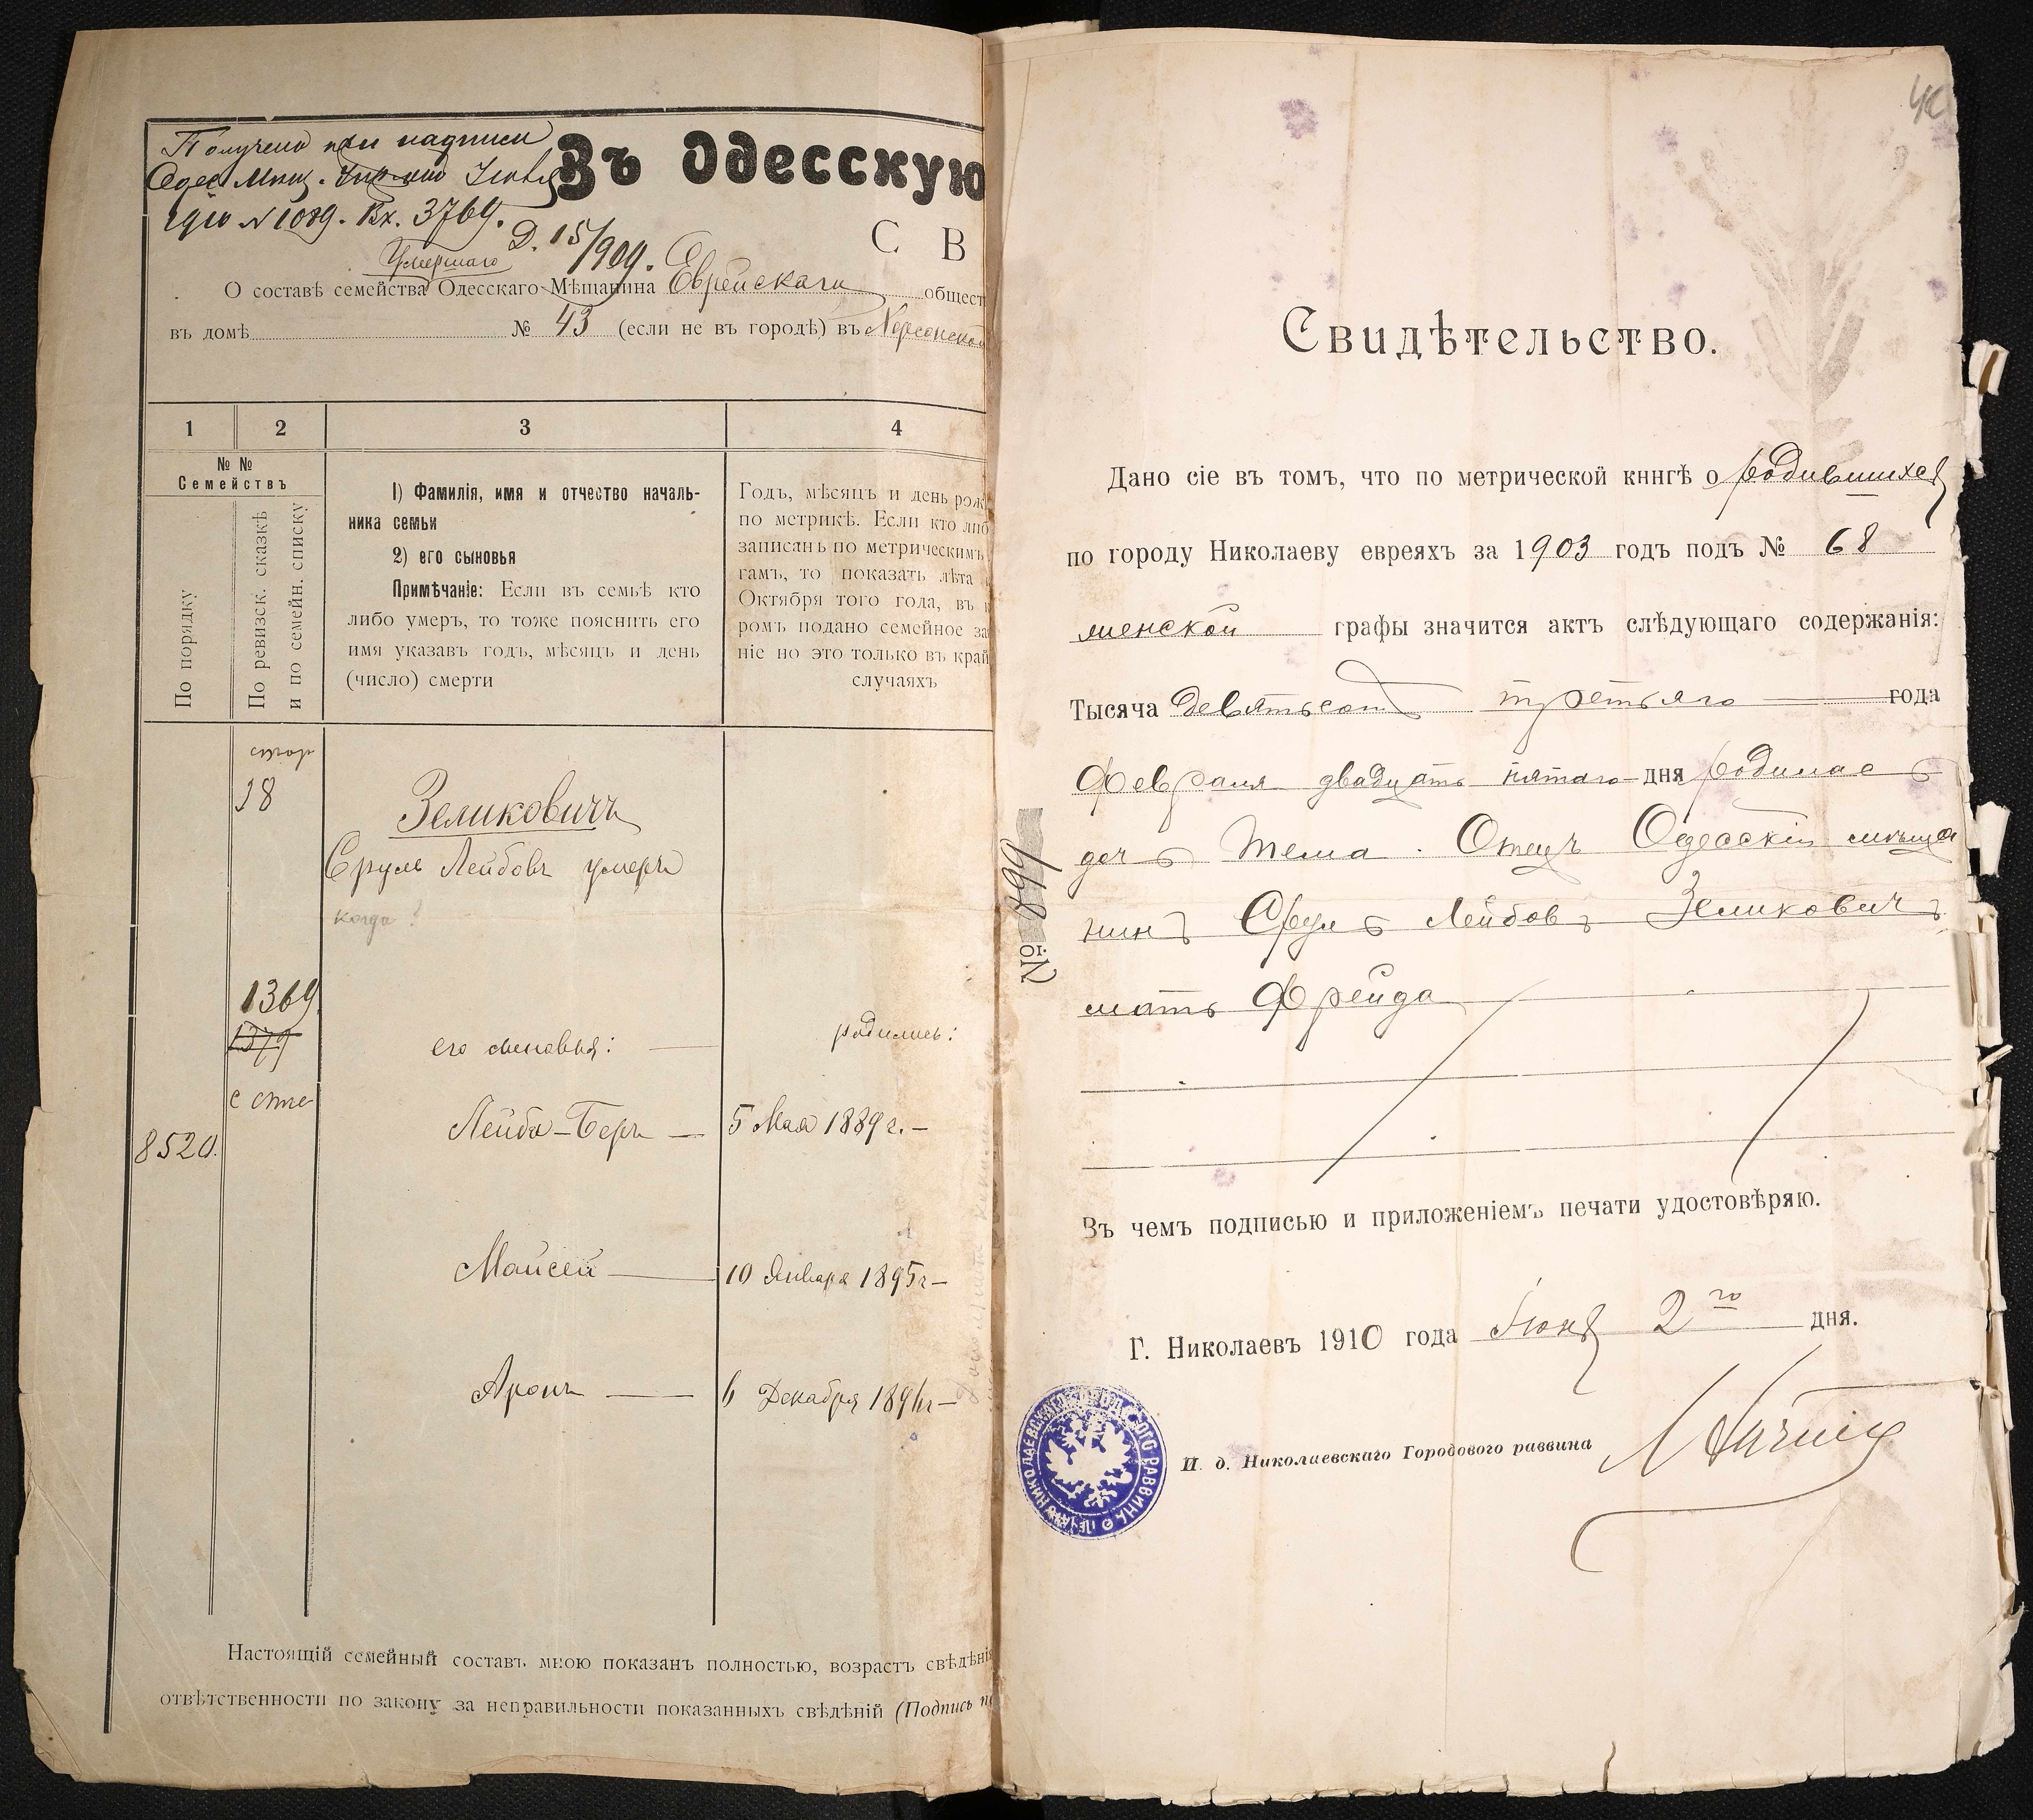 Получено при надписи
Одес. Мѣщ. Управы
1910 № 1089. Вх. 3769.
Д. 15/909.
Въ Одесскую
С В
Умершаго
О составѣ семейства Одесскаго Мѣщанина Еврейскаго общест
въ домѣ № 43 (если не въ городѣ) въ Херсонской
1 2 3 4
№ №
Семействъ
По порядку
По ревизск. сказкѣ
и по семейн. списку
1) Фамилія, имя и отчество началь-
ника семьи
2) его сыновья
Примѣчаніе: Если въ семьѣ кто
либо умеръ, то тоже пояснить его
имя указавъ годъ, мѣсяцъ и день
(число) смерти
Годъ, мѣсяцъ и день рож
по метрикѣ. Если кто либ
записанъ по метрическимъ
гамъ, то показать лѣта
Октября того года, въ
ромъ подано семейное за
ніе но это только въ край
случаяхъ
38
Зеликовичъ
Сруль Лейбовъ умеръ
когда?
1369
1379
его сыновья: родились:
8520. Лейба-Беръ — 5 Мая 1889 г. —
Мойсей — 10 Января 1895 г —
Аронъ — 6 Декабря 1896 г —
Настоящій семейный составъ мною показанъ полностью, возрастъ свѣдѣнія
отвѣтственности по закону за неправильности показанныхъ свѣдѣній (Подпись
Свидѣтельство.
Дано сіе въ томъ, что по метрической кннгѣ о родившихся
по городу Николаеву евреяхъ за 1903 годъ подъ № 68
женской графы значится актъ слѣдующаго содержанія:
Тысяча девятьсотъ третьяго года
Февраля двадцать пятаго дня родилась
дочь Тема. Отецъ Одесскій мѣща
нинъ Сруль Лейбовъ Зеликовичъ
мать Фрейда
№ 899
Въ чемъ подписью и приложеніемъ печати удостовѣряю.
Г. Николаевъ 1910 года Іюня 2го дня.
И. д. Николаевскаго Городового раввина